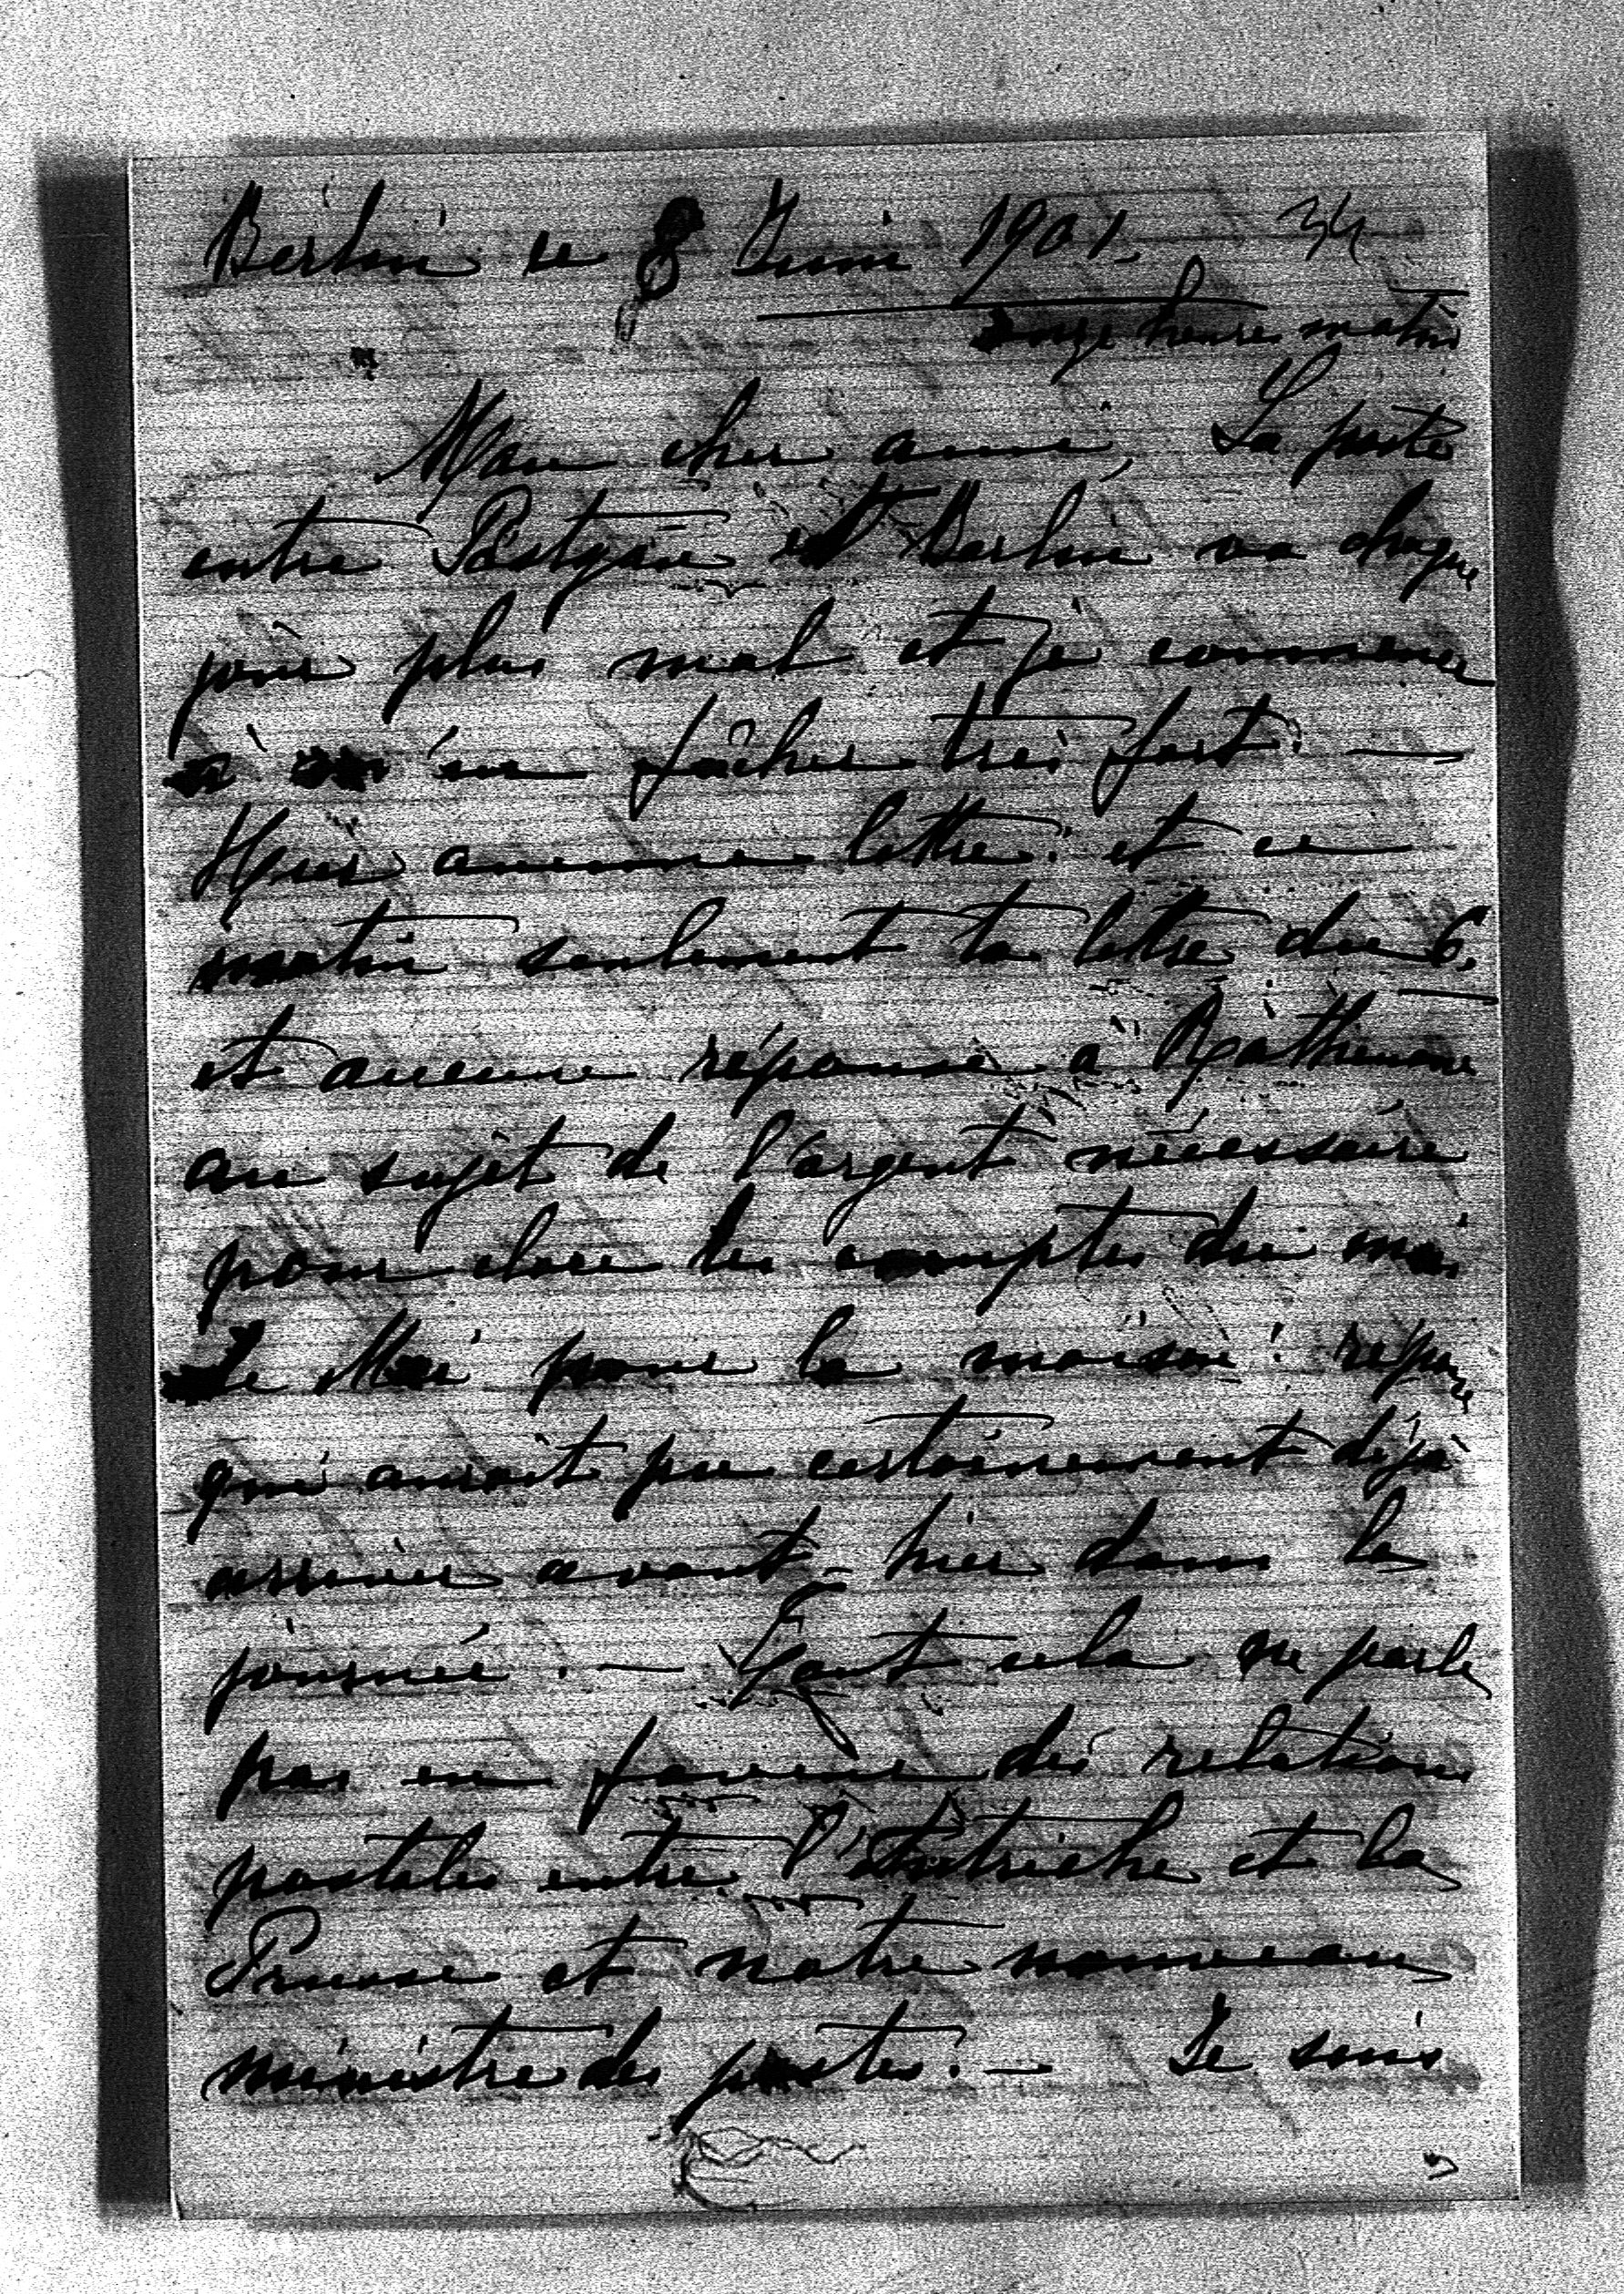 Berlin le 8 Juin 1901. 34
onze heures matin
Mon cher ami, La poste
entre Pöstyén et Berlin va chaque
jour plus mal et je commence
à m'en fâcher très fort. —
Hier aucune lettre: et ce
matin seulement ta lettre du 6,
et aucune réponse à Rathmann
au sujet de l'argent nécessaire
pour clore les comptes du mois
de Mai pour la maison: réponse
qui aurait pu certainement déjà
arriver avant-hier dans la
journée. — Tout cela ne parle
pas en faveur des relations
postales entre l'Autriche et la
Prusse et notre nouveau
ministre des postes. — Je suis